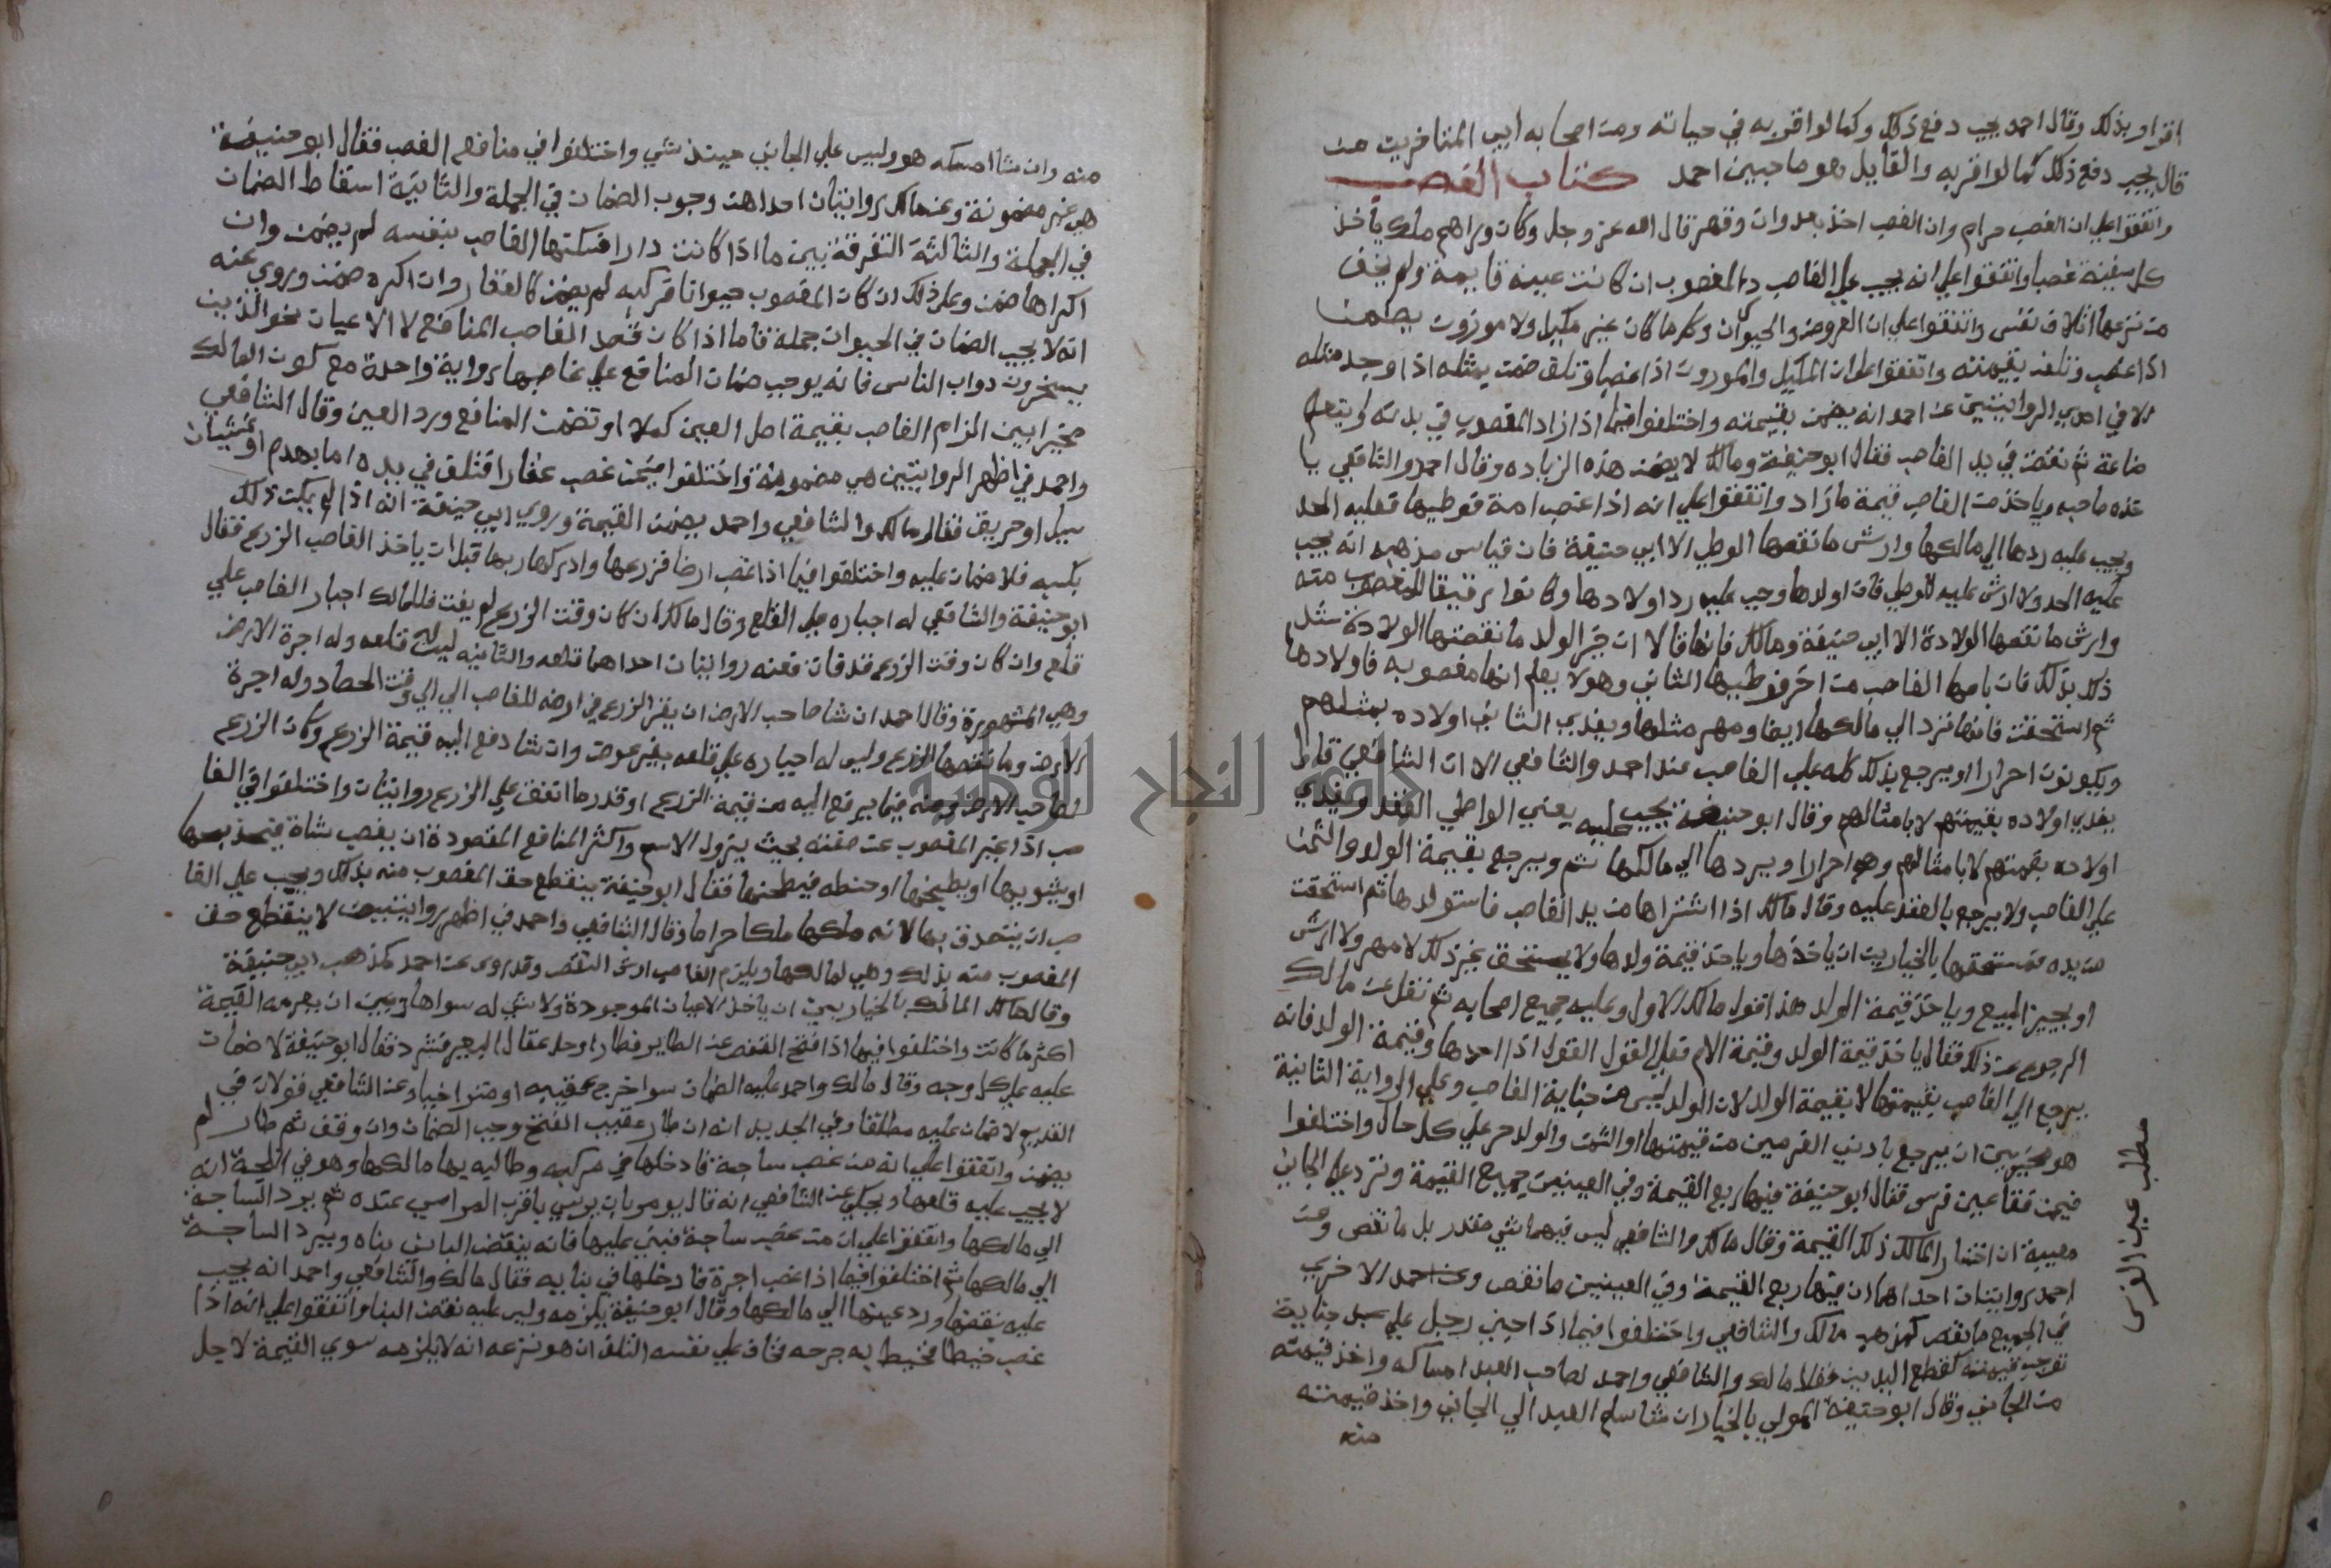 اقر او بذلك وقال احمد يجب دفع ذلك وكما لو اقر به في حياته ومن اصحابه ايي المتاخرين من
قال يجب دفع ذلك كما لو اقر به والقايل هو صاحبين احمد كتاب الغصب
واتفقوا علي ان الغصب حرام وان الغصب اخذ بعدوان وقهر قال الله عز وجل وكان وراهم ملك ياخذ
كل سفينة غصبا واتفقوا علي انه يجب علي الغاصب رد المغصوب ان كانت عينه قايمة ولم يخف
من نزعها اتلاف نفس واتفقوا علي ان العروض والحيوان وكل ما كان غير مكيل ولا موزون يضمن
اذا غصب وتلف بقيمته واتفقوا علي ان المكيل والموزون اذا غصب وتلف ضمن بمثله اذا وجد مثله
الا في احدي الروايتين عن احمد انه يضمن بقيمته واختلفوا فيما اذا زاد المغصوب في بدنه او يتعلم
صناعة ثم نقص في يد الغاصب فقال ابو حنيفة ومالك لا يضمن هذه الزياده وقال احمد والشافعي يا
خذه صاحبه وياخذ من الغاصب قيمة ما زاد واتفقوا علي انه اذا غصب امة فوطيها فعليه الحد
ويجب عليه ردها الي مالكها وارش ما نقصها الوطي الا ابي حنيفة فان قياس مذهبه انه يجب
عليه الحد ولا ارش عليه للوطي فان اولدها وجب عليه رد اولادها وكانوا رقيقا للمغصوب منه
وارش ما نقصها الولادة الا ابي حنيفة ومالك فانهما قالا ان جبر الولد ما نقصتها الولادة
ذلك بذلك فان باعها الغاصب من اخر فوطيها الثاني وهو لا يعلم انها مغصوبه فاولادها
ثم استحقت فانها ترد الي مالكها ايضا ومهر مثلها ويفدي الثاني اولاده بمثلهم
ويكونون احرارا ويرجع بذلك كله علي الغاصب عند احمد والشافعي الا ان الشافعي قال
يفدي اولاده بقيمتهم لا بامثالهم وقال ابو حنيفة يجب عليه يعني الواطي العقد ويفدي
اولاده بقيمتهم لا بامثالهم وهو احرارا ويردها الي مالكها ثم ويرجع بقيمة الولد والثمن
علي الغاصب ولا يرجع بالعقد عليه وقال مالك اذا اشتراها من يد الغاصب فاستولدها ثم استحقت
من يده فمستحقها بالخيار بين ان ياخذها وياخذ قيمة ولدها ولا يستحق غير ذلك لا مهر ولا ارش
او يجيز المبيع وياخذ قيمة الولد هذا قول مالك الاول وعليه جميع اصحابه ثم نقل عن مالك
الرجوع عن ذلك فقال ياخذ قيمة الولد وقيمة الام فعلي القول القول اذا اخذها وقيمة الولد فانه
يرجع الي الغاصب بقيمتها لا بقيمة الولد لان الولد ليس من جناية الغاصب وعلي الرواية الثانية
هو مخير بين ان يرجع بادني الغرمين من قيمتها او الثمن والولد حر علي كل حال واختلفوا
فيمن فقا عين فرس فقال ابو حنيفة فيها ربع القيمة وفي العينين جميع القيمة وترد علي الجاني
معيبة ان اختار المالك ذلك القيمة وقال مالك والشافعي ليس فيهما شي مقدر بل ما نقص وعن
احمد روايتان احداهما ان فيها ربع القيمة وفي العينين ما نقص وعن احمد الاخري
في الجميع ما نقص كمذهب مالك والشافعي واختلفوا فيما اذا جني رجل علي عبد جناية
تفرجت قيمته كقطع اليدين فقال مالك والشافعي واحمد لصاحب العبد امساكه واخذ قيمته
من الجاني وقال ابو حنيفة المولي بالخيار ان شا سلم العبد الي الجاني واخذ قيمته
منه
مطلب عين الفرس
منه وان شا امسكه هو وليس علي الجاني حينئذ شي واختلفوا في منافع الغصب فقال ابو حنيفة
هي غير مضمونة وعن مالك روايتان احداهن وجوب الضمان في الجملة والثانية اسقاط الضمان
في الجملة والثالثة التفرقة بين ما اذا كانت دارا فسكنها الغاصب بنفسه لم يضمن وان
اكراها ضمن وعلي ذلك ان كان المغصوب حيوانا فركبه لم يضمن كالعقار وان اكره ضمن وروي عنه
انه لا يجب الضمان في الحيوان جملة فاما اذا كان قصد الغاصب المنافع لا الاعيان نحو الذين
يسخرون دواب الناس فانه يوجب ضمان المنافع علي غاصبها رواية واحدة مع كون المالك
مخيرا بين الزام الغاصب بقيمة اصل العين كملا او تضمن المنافع ورد العين وقال الشافعي
واحمد في اظهر الروايتين هي مضمونة واختلفوا فيمن غصب عقارا فتلف في يده اما بهدم او غشيان
سيل او حريق فقال مالك والشافعي واحمد يضمن القيمة وروي ابي حنيفة انه اذا لم يكن ذلك
بكسبه فلا ضمان عليه واختلفوا فيما اذا غصب ارضا فزرعها وادركها ربها قبل ان ياخذ الغاصب الزرع فقال
ابو حنيفة والشافعي له اجباره علي القلع وقال مالك ان كان وقت الزرع لم يفت فللمالك اجبار الغاصب علي
قلع وان كان وقت الزرع قد فات فعنه روايتان احداهما قلعه والثانية ليس له قلعه وله اجرة الارض
وهي المشهورة وقال احمد ان شا صاحب الارض ان يقر الزرع في ارضه للغاصب الي الي وقت الحصاد وله اجرة
الارض وما نقصها الزرع وليس له اجباره علي قلعه بغير عوض وان شا دفع اليه قيمة الزرع وكان الزرع
لصاحب الارض وعنه فيما يرفع اليه من قيمة الزرع او قدر ما انفق علي الزرع روايتان واختلفوا في الغا
صب اذا غير المغصوب عن صفته بحيث يزول الاسم واكثر المنافع المقصودة ان يغصب شاة فيذبحها
او يشويها او يطبخها او حنطه فيطحنها فقال ابو حنيفة ينقطع حق المغصوب منه بذلك ويجب علي الغا
صب ان يتصدق بها لانه ملكها ملكا حراما وقال الشافعي واحمد في اظهر روايتين لا ينقطع حق
المغصوب منه بذلك وهي لمالكها ويلزم الغاصب ارش النقص وقد روي عن احمد كمذهب ابي حنيفة
وقال مالك المالك بالخيار بين ان ياخذ الاعيان الموجودة ولا شي له سواها وبين ان يغرمه القيمة
اكثر ما كانت واختلفوا فيها اذا فتح القفص عن الطاير فطار او حل عقال البعير فشرد فقال ابو حنيفة لا ضمان
عليه علي كل وجه وقال مالك واحمد عليه الضمان سوا خرج عقيبه او متراخيا وعن الشافعي قولان في
القديم لا ضمان عليه مطلقا وفي الجديد انه ان طار عقيب الفتح وجب الضمان وان وقف ثم طار لم
يضمن واتفقوا علي انه من غصب ساجة فادخلها في مركبه وطالبه بها مالكها وهو في اللجة انه
لا يجب عليه قلعها ويحكي عن الشافعي انه قال يومر بان يرسي باقرب المراسي عنده ثم يرد الساجة
الي مالكها واتفقوا علي ان من غصب ساجة فبني عليها فانه ينقض الباني بناه ويرد الساجة
الي مالكها ثم اختلفوا فيما اذا غصب اجرة فادخلها في بنايه فقال مالك والشافعي واحمد انه يجب
عليه نقضها ورد عينها الي مالكها وقال ابو حنيفة يلزمه وليس عليه نقض البنا واتفقوا علي انه اذا
غصب خيطا فخيط به جرحه فخاف علي نفسه التلف ان هو نزعه انه لا يلزمه سوي القيمة لا حل
جامعة النجاح الوطنية